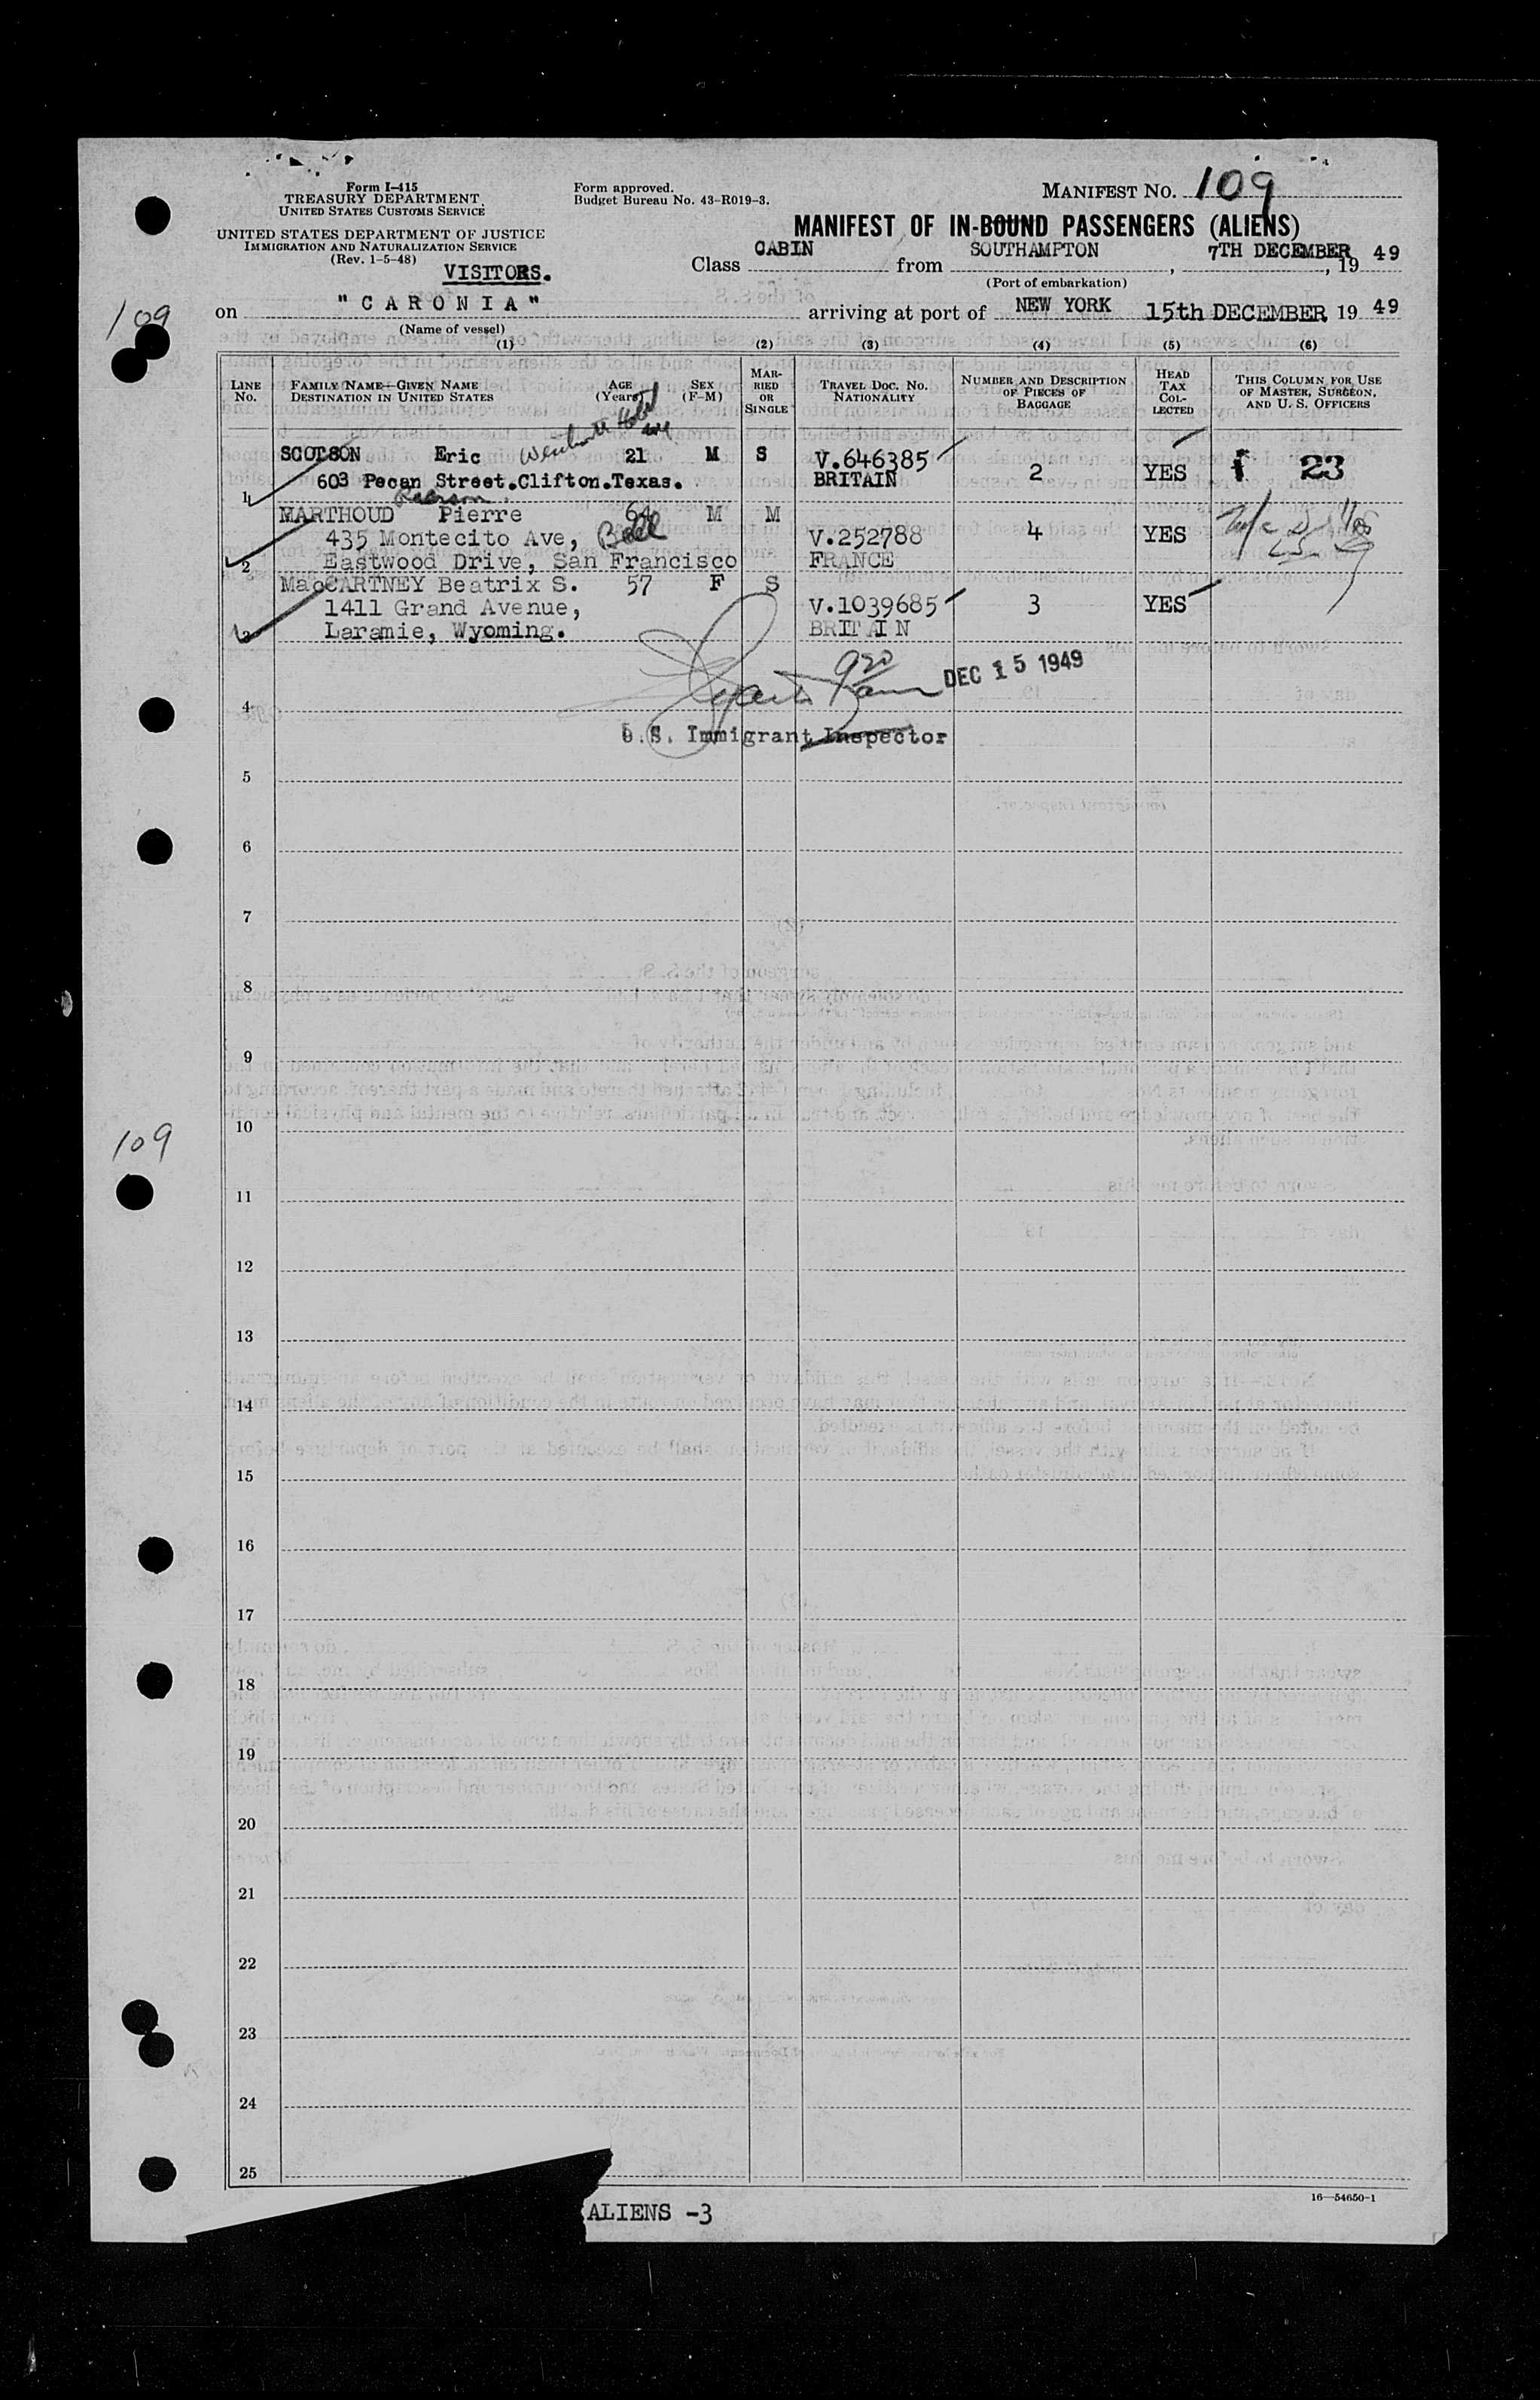 Form I-415
TREASURY DEPARTMENT
UNITED STATES CUSTOMS SERVICE
UNITED STATES DEPARTMENT OF JUSTICE
IMMIGRATION AND NATURALIZATION SERVICE
(Rev. 1-5-48)
VISITORS.
Form approved.
Budget Bureau No. 43-R019-3.
MANIFEST NO. 109
MANIFEST OF IN-BOUND PASSENGERS (ALIENS)
Class CABIN from SOUTHAMPTON, 7TH DECEMBER, 19 49
(Port of embarkation)
109
on "CARONIA" arriving at port of NEW YORK 15th DECEMBER 19 49
(Name of vessel)
(1) (2) (3) (4) (5) (6)
LINE NO.
FAMILY NAME—GIVEN NAME
DESTINATION IN UNITED STATES
AGE (Years)
SEX (F-M)
MARRIED OR SINGLE
TRAVEL DOC. NO.
NATIONALITY
NUMBER AND DESCRIPTION OF PIECES OF BAGGAGE
HEAD TAX COLLECTED
THIS COLUMN FOR USE OF MASTER, SURGEON, AND U. S. OFFICERS
Hotel
SCOTSON Eric 21 M S V.646385 2 YES 23
1 603 Pecan Street.Clifton.Texas. BRITAIN
MARTHOUD Pierre 64 M M
435 Montecito Ave, Bell V.252788 4 YES
2 Eastwood Drive, San Francisco FRANCE
MacCARTNEY Beatrix S. 57 F S
1411 Grand Avenue, V.1039685 3 YES
3 Laramie, Wyoming. BRITAIN
920
DEC 15 1949
4
U.S. Immigrant Inspector
5
6
7
8
9
10
109
11
12
13
14
15
16
17
18
19
20
21
22
23
24
25
16—54650-1
ALIENS -3